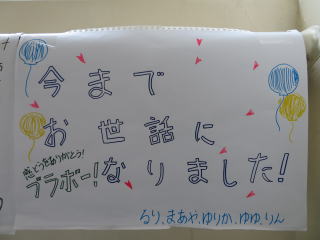 今まで
お世話に
なりました!
感どうをありがとう!
ブラボー!
るり、まあや、ゆりか、ゆゆ、りん